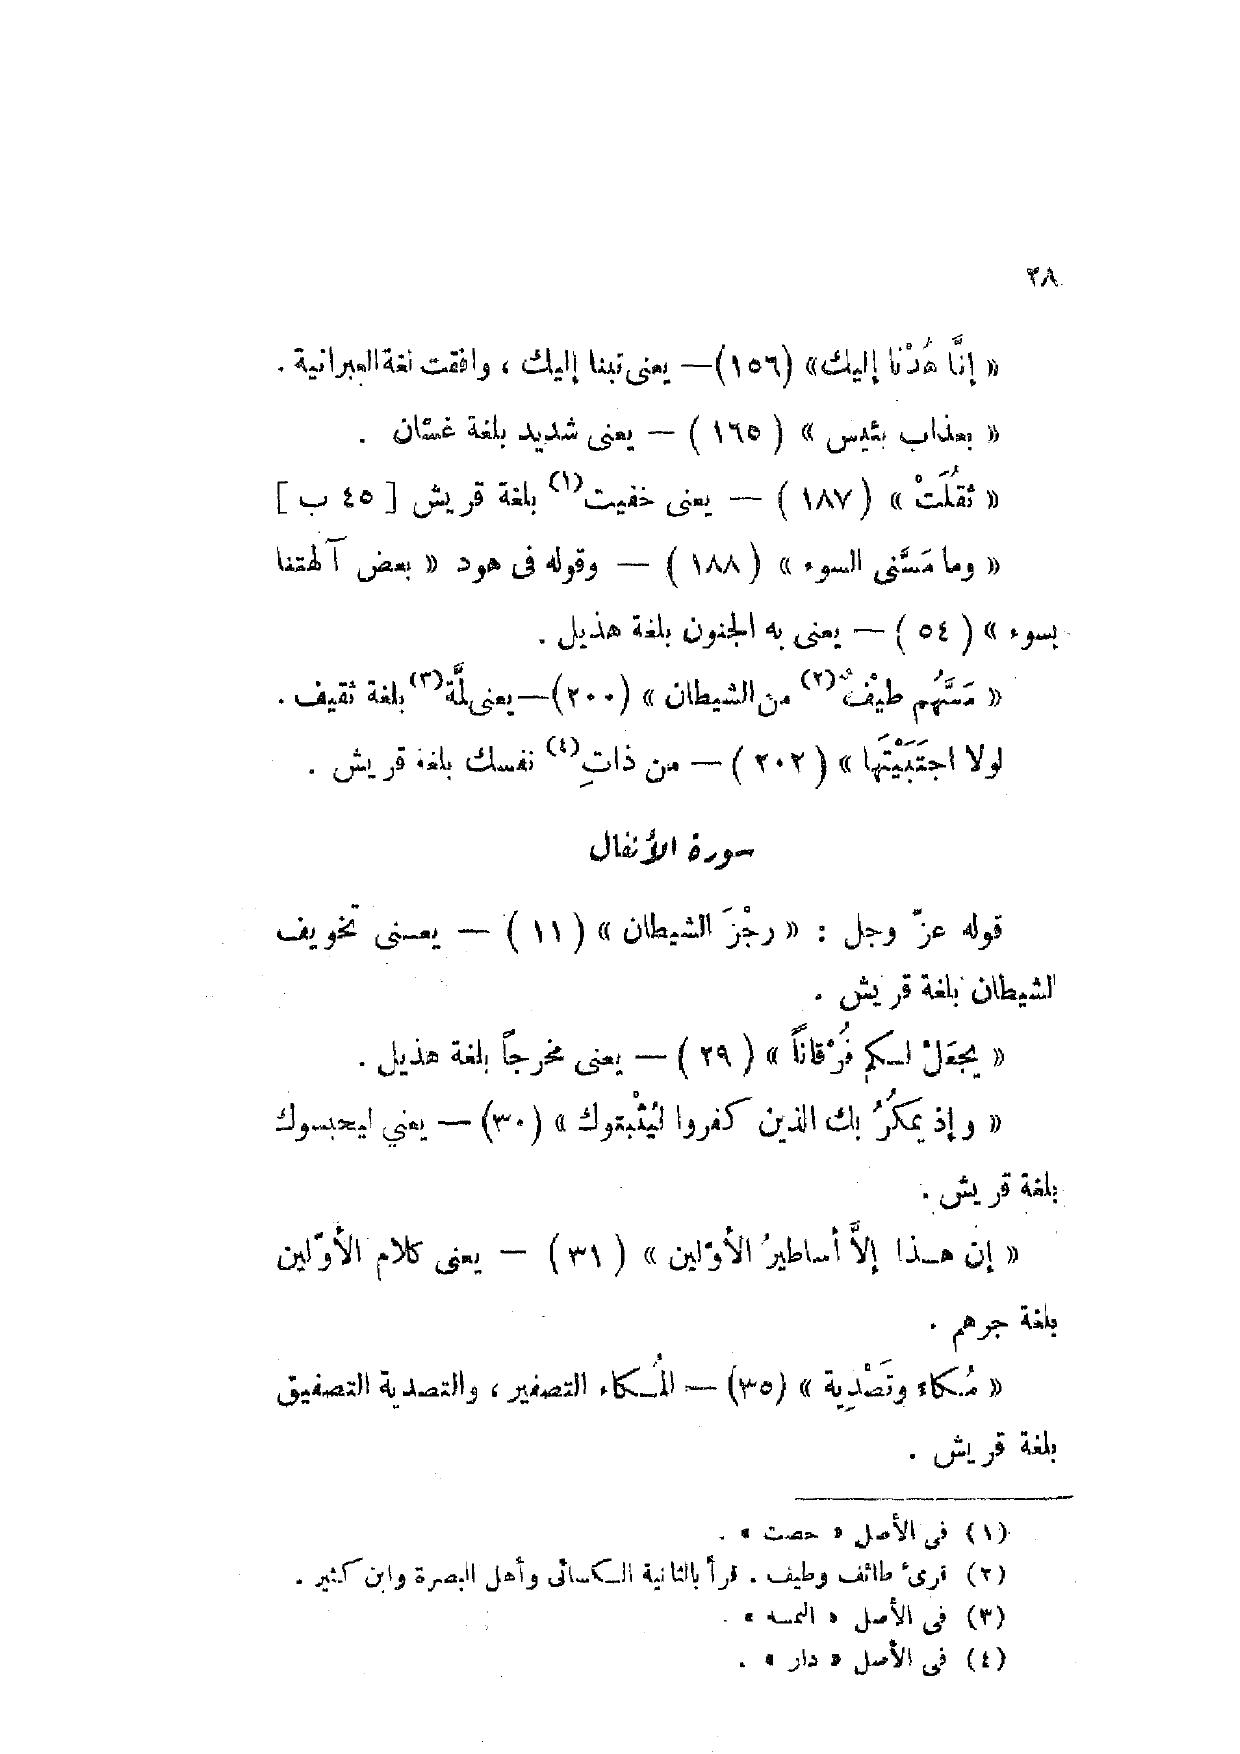 ٢٨
« إنَّا هُدْنا إليك» (١٥٦)— يعنى تبنا إليك ، وافقت لغة العبرانية .
« بعذاب بئيس » ( ١٦٥ ) — يعنى شديد بلغة غسّان .
« ثَقُلَتْ » ( ١٨٧ ) — يعنى خفيت(١) بلغة قريش [ ٤٥ ب ]
« وما مَسَّنى السوء » ( ١٨٨ ) — وقوله فى هود « بعض آلهتنا
بسوء » ( ٥٤ ) — يعنى به الجنون بلغة هذيل .
« مَسَّهُم طيْفٌ(٢) من الشيطان » (٢٠٠)—يعنى لمَّة(٣) بلغة ثقيف .
لولا اجتَبَيْتَها » ( ٢٠٢ ) — من ذاتِ(٤) نفسك بلغة قريش .
سورة الأنفال
قوله عزّ وجل : « رجْزَ الشيطان » ( ١١ ) — يعنى تخويف
الشيطان بلغة قريش .
« يجعَلْ لكم فُرْقاناً » ( ٢٩ ) — يعنى مخرجاً بلغة هذيل .
« وإذ يمكُرُ بك الذين كفروا ليُثْبتوك » (٣٠) — يعني ليحبسوك
بلغة قريش .
« إن هـذا إلاَّ أساطيرُ الأوّلين » ( ٣١ ) — يعنى كلام الأوّلين
بلغة جرهم .
« مُكاء وتَصْدِية » (٣٥) — المُكاء التصفير ، والتصدية التصفيق
بلغة قريش .
(١) فى الأصل « حصت » .
(٢) قرىء طائف وطيف . قرأ بالثانية الكسائى وأهل البصرة وابن كثير .
(٣) فى الأصل « المسد » .
(٤) فى الأصل « دار » .